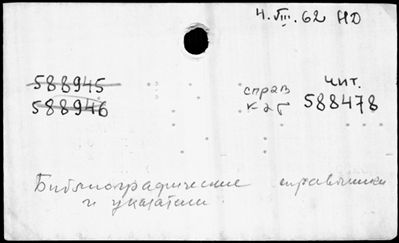 4.VIII.62 НО
588945 чит.
588946 справ к-2б 588478
Библиографические справочники
и указатели